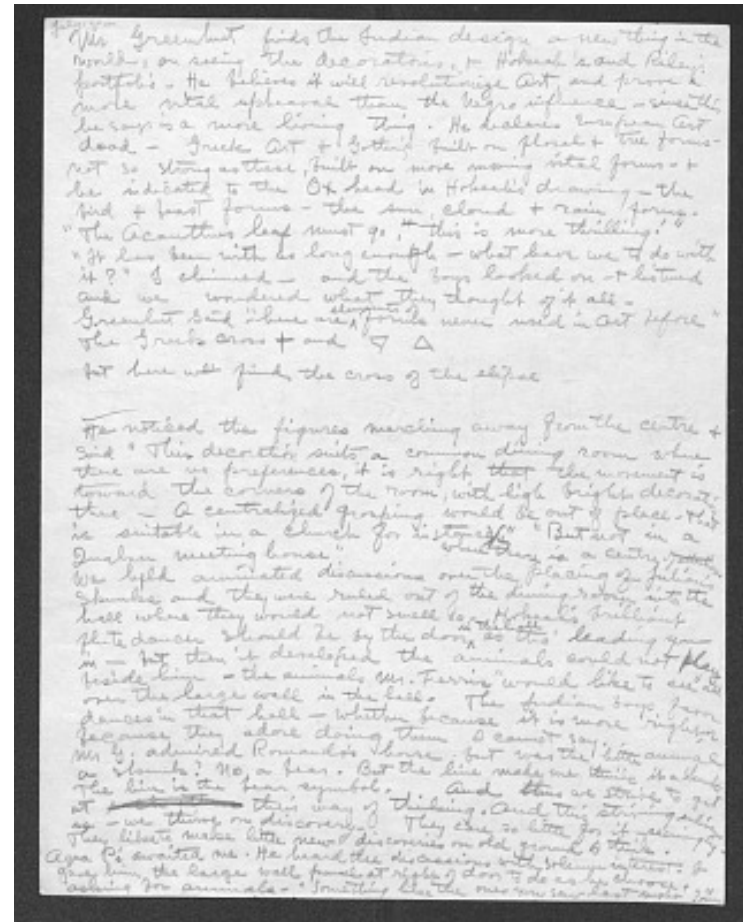 Mr Greenhut finds the Indian design a new thing in the
world, on seeing the decorations, + Hokeah's and Riley's
portfolio. He believes it will revolutionize Art and prove a
more vital upheaval than the Negro influence - since this
he says is a more living thing. He declares European Art
dead - Greek Art + Gothic, built on floral + tree forms -
not so strong as these, built on more moving vital forms - +
he indicated to the Ox head in Hokeah's drawing - the
bird + beast forms - the sun, cloud + rain forms.
"The Acanthus leaf must go," "this is more thrilling!"
"It has been with us long enough - what have we to do with
it?" I chimed - and the boys looked on - + listened
and we wondered what they thought of it all -
Greenhut said "here are elements forms never used in Art before"
The Greek cross + and "▽ △
but here we find the cross of the elipse
He noticed the figures marching away from the centre +
said "This decoration suits a common dining room where
there are no preferences, it is right that the movement is
toward the corners of the room, with high bright decorat-
ive - A centralized grouping would be out of place - that
is suitable in a church for instance" "But not in a
Quaker meeting house" where there is a centre
We held animated discussions over the placing of Julian's
skunks and they were ruled out of the dining room into the
hall where they would not smell so. Hokeah's brilliant
flute dancer should be by the door, as tho' leading you
in - but then it developed the animals could not play
beside him - the animals Mr. Ferris "would like to see" all
over the large wall in the hall. The Indian boys favor
dances in that hall - whether because it is more right or
because they adore doing them I cannot say.
Mr G. admired Romando's horse, but was the little animal
a skunk? No, a bear. But the line makes me think it a skunk
The line is the bear symbol. And thus we strive to get
at their way of thinking. And this striving
we thrive on discovery. They care so little for it seemingly.
They like to make little new discoveries on old ground
Awa awaited me. He heard the discussions with solemn interest. I
gave him the large wall panel at right of door to do as he chooses,
asking for animals - "Something like the ones you say last night"